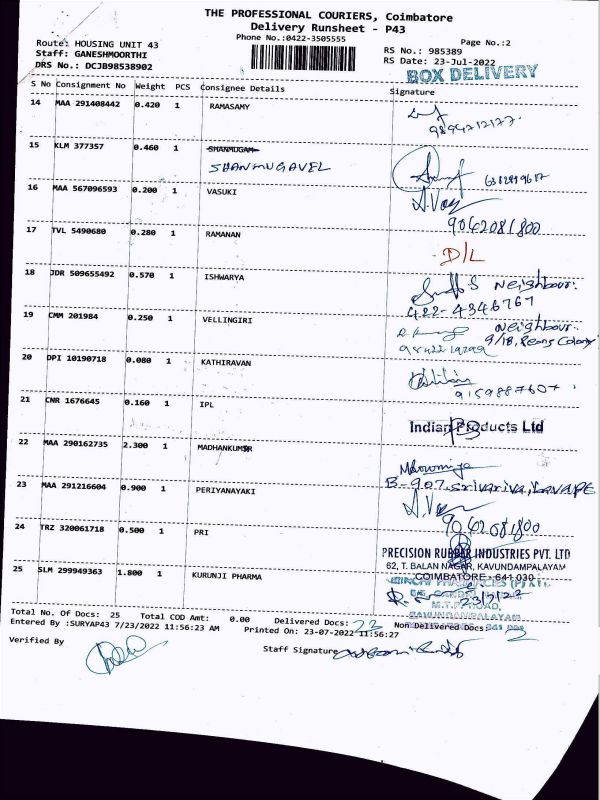 THE PROFESSIONAL COURIERS, Coimbatore
Delivery Runsheet - P43
Phone No.:0422-3505555
Route: HOUSING UNIT 43
Page No.:2
Staff: GANESHMOORTHI
RS No.: 985389
DRS No.: DCJB98538902
RS Date: 23-Jul-2022
BOX DELIVERY
S No Consignment No Weight PCS Consignee Details Signature
14 MAA 291408442 0.420 1 RAMASAMY
15 KLM 377357 0.460 1 SHANMUGAM
SHANMUGAVEL
16 MAA 567096593 0.200 1 VASUKI
9042081800
17 TVL 5490680 0.280 1 RAMANAN
D/L
18 JDR 509655492 0.570 1 ISHWARYA
Neighbour:
422-4346767
19 CMM 201984 0.250 1 VELLINGIRI
Neighbour:
9/18, Reons Colony
20 DPI 10190718 0.080 1 KATHIRAVAN
9159887607
21 CNR 1676645 0.160 1 IPL
Indian Products Ltd
22 MAA 290162735 2.300 1 MADHANKUMSR
B-907, srivariva,
23 MAA 291216604 0.900 1 PERIYANAYAKI
9042081800
24 TRZ 320061718 0.500 1 PRI
PRECISION RUBBER INDUSTRIES PVT. LTD
62, T. BALAN NAGAR, KAVUNDAMPALAYAM
COIMBATORE - 641 030
25 SLM 299949363 1.800 1 KURUNJI PHARMA
M.T.P. ROAD,
Total No. Of Docs: 25 Total COD Amt: 0.00 Delivered Docs: 23 Non Delivered Docs: 2
Entered By :SURYAP43 7/23/2022 11:56:23 AM Printed On: 23-07-2022 11:56:27
Verified By Staff Signature